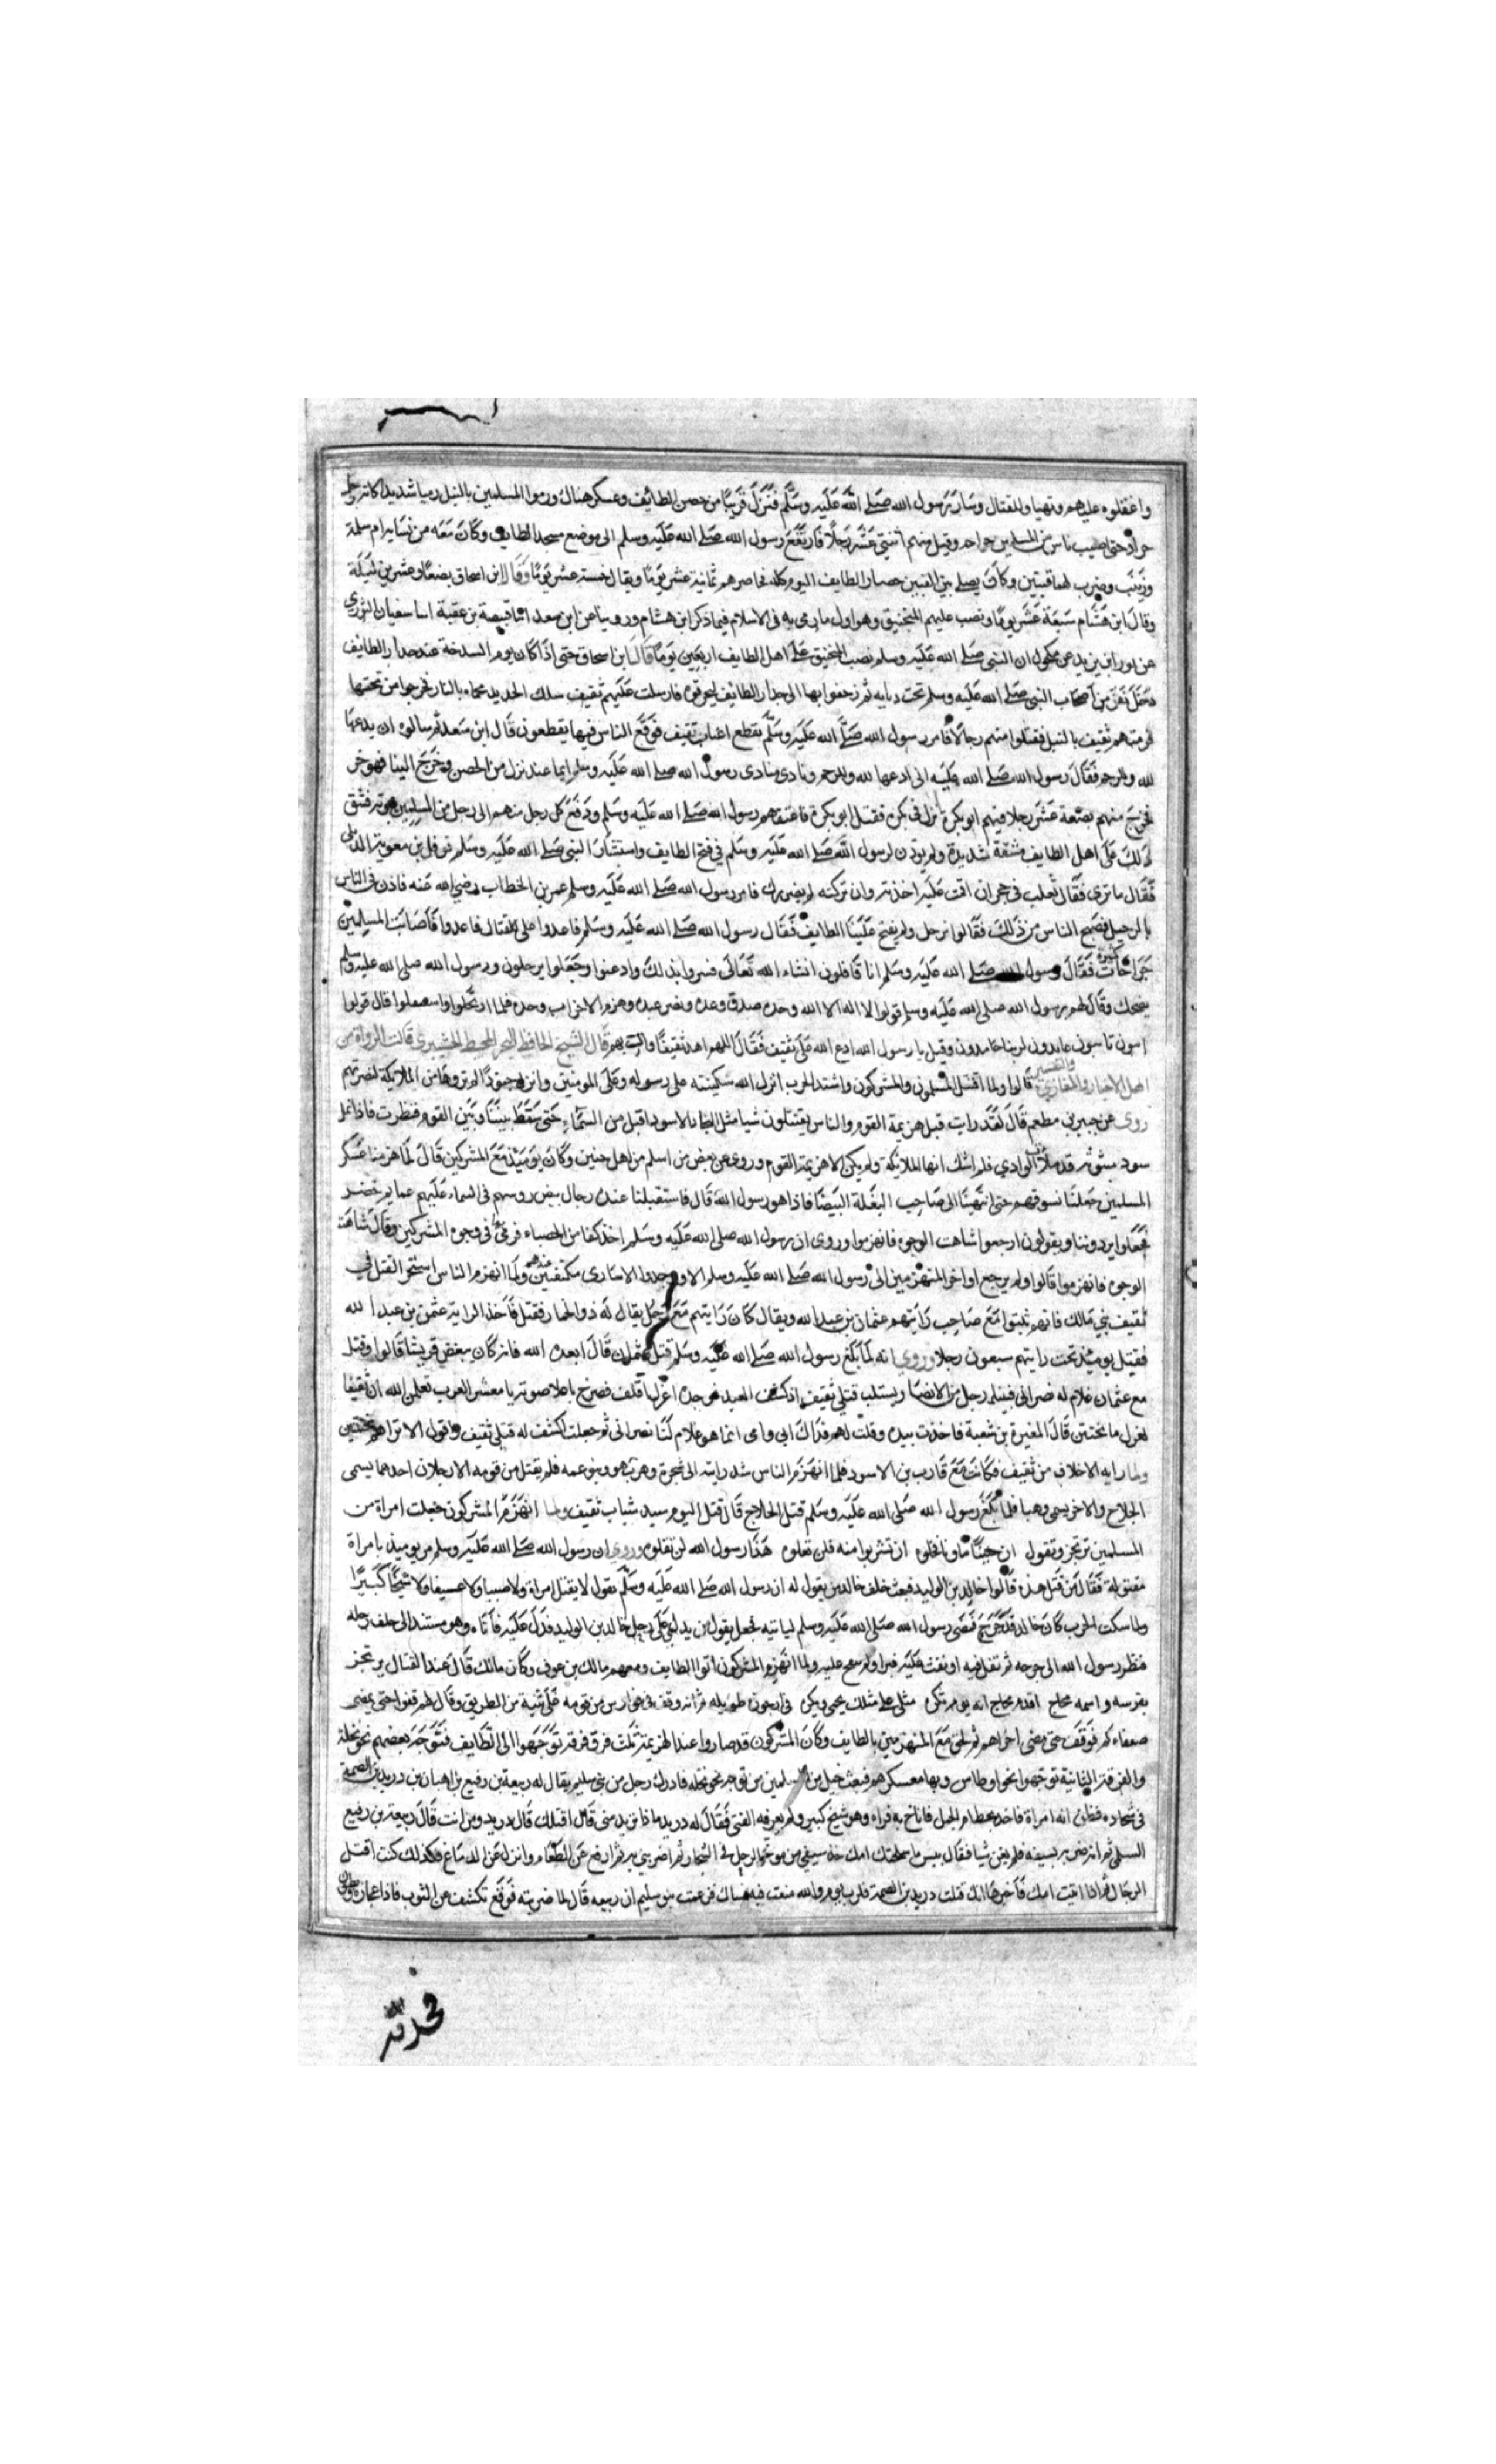 واغفلوه عليهم وتهياوا للقتال وسار رسول الله صلى الله عليه وسلم فنزل قريبا من حصن الطائف وعسكر هناك ورموا المسلمين بالنبل رميا شديدا كانه رجل
جراد حتى اصيب ناس من المسلمين جراحه وقيل منهم اثنى عشر رجلا فارتفع رسول الله صلى الله عليه وسلم الى موضع مسجد الطايف وكان معه من نسايه ام سلمة
وزينب وضرب لهما قبتين وكان يصلى بين القبتين حصار الطايف اليوم كله فحاصرهم ثمانية عشر يوما ويقال خمسة عشر يوما وقال ابن اسحاق بضعا وعشرين ليلة
وقال ابن هشام سبعة عشر يوما ونصب عليهم المنجنيق وهو اول ما رمى به فى الاسلام فيما ذكر ابن هشام وروينا عن ابن سعد انا قبيصة بن عقبة انا سفيان الثورى
عن ثور بن يزيد عن مكحول ان النبى صلى الله عليه وسلم نصب المنجنيق على اهل الطايف اربعين يوما قال ابن اسحاق حتى اذا كان يوم السدخة عند جدار الطايف
دخل نفر من اصحاب النبى صلى الله عليه وسلم تحت دبابه ثم زحفوا بها الى جدار الطائف ليحرقوه فارسلت عليهم ثقيف سلك الحديد محماه بالنار فخرجوا من تحتها
فرمتهم ثقيف بالنبل فقتلوا منهم رجالا فامر رسول الله صلى الله عليه وسلم بقطع اعناب ثقيف فوقع الناس فيها يقطعون قال ابن سعد ثم سالوه ان يدعها
لله وللرحم فقال رسول الله صلى الله عليه انى ادعها لله وللرحم ونادى منادى رسول الله صلى الله عليه وسلم ايما عبد نزل من الحصن وخرج الينا فهو حر
فخرج منهم بضعة عشر رجلا فيهم ابو بكرة نزل فى بكرة فقيل ابو بكرة فاعتقهم رسول الله صلى الله عليه وسلم ودفع كل رجل منهم الى رجل من المسلمين يمونه فشق
ذلك على اهل الطايف مشقة شديدة ولم يوذن لرسول الله صلى الله عليه وسلم في فتح الطايف واستشار النبى صلى الله عليه وسلم نوفل بن معوية الديلى
فقال ما ترى فقال ثعلب فى جحر ان اقمت عليه اخذته وان تركته لم يضرك فامر رسول الله صلى الله عليه وسلم عمر بن الخطاب رضي الله عنه فاذن فى الناس
بالرحيل فضج الناس من ذلك فقالوا نرحل ولم يفتح علينا الطايف فقال رسول الله صلى الله عليه وسلم فاغدوا على القتال فاغدوا فاصابت المسلمين
جراحات كثيرة فقال رسول الله صلى الله عليه وسلم انا قافلون انشاء الله تعالى فسروا بذلك واذعنوا وجعلوا يرحلون ورسول الله صلى الله عليه وسلم
يضحك وقال لهم رسول الله صلى الله عليه وسلم قولوا لا اله الا الله وحده صدق وعده ونصر عبده وهزم الاحزاب وحده فلما ارتحلوا واستقبلوا قال قولوا
ايبون تايبون عابدون لربنا حامدون وقيل يا رسول الله ادع الله على ثقيف فقال اللهم اهد ثقيفا وائت بهم قال الشيخ الحافظ قالت الرواة من
اهل الاخبار والمغازى والتفسير قالوا ولما اقتتل المسلمون والمشركون واشتد الحرب انزل الله سكينته على رسوله وعلى المومنين وانزل جنودا لم تروها من الملايكة لنصرتهم
روى عن جبير بن مطعم قال لقد رايت قبل هزيمة القوم والناس يقتتلون شيا مثل البجاد الاسود اقبل من السماء حتى سقط بيننا وبين القوم فنظرت فاذا نمل
سود مبثوث قد ملأ الوادي فلم اشك انها الملائكة ولم يكن الا هزيمة القوم وروى عن بعض من اسلم من اهل حنين وكان يوميذ مع المشركين قال لما هزمنا عسكر
المسلمين جعلنا نسوقهم حتى انتهينا الى صاحب البغلة البيضا فاذا هو رسول الله قال فاستقبلنا عنده رجال بيض روسهم فى السماء عليهم عمايم خضر
فجعلوا يردوننا ويقولون ارجعوا شاهت الوجوه فانهزموا وروى ان رسول الله صلى الله عليه وسلم اخذ كفا من الحصباء فرمى فى وجوه المشركين وقال شاهت
الوجوه فانهزموا قالوا ولم يرجع اواخر المنهزمين الى رسول الله صلى الله عليه وسلم الا وجدوا الاسارى مكتفين عنده ولما انهزم الناس استحر القتل في
ثقيف بني مالك فانهم ثبتوا مع صاحب رايتهم عثمان بن عبدالله ويقال كان رايتهم مع رجل يقال له ذو الخمار فقتل فاخذ الراية عثمن بن عبد الله
فقتل يوميذ تحت رايتهم سبعون رجلا وروى انه لما بلغ رسول الله صلى الله عليه وسلم قتل عثمان قال ابعده الله فانه كان يبغض قريشا قالوا وقتل
مع عثمان غلام له نصرانى فبينما رجل من الانصار يستلب قتلى ثقيف اذ كشف العبد فوجده اغرل اقلف فصرخ باعلا صوته يا معشر العرب تعلمن الله ان ثقيفا
لغرل ما تختتن قال المغيرة بن شعبة فاخذت بيده وقلت لهم فداك ابى وامى انما هو غلام لنا نصرانى ثم جعلت اكشف له قتلى ثقيف واقول الا تراهم مختتنين
ولما رايه الاخلاف من ثقيف فكانت مع قارب بن الاسود فلما انهزم الناس شد رايته الى شجرة وهرب هو وبنو عمه فلم يقتل من قومه الا رجلان احدهما يسمى
الجلاح والاخر يسمى وهبا فلما بلغ رسول الله صلى الله عليه وسلم قتل الجلاح قال قتل اليوم سيد شباب ثقيف ولما انهزم المشركون جعلت امراة من
المسلمين ترتجز وتقول ان حنينا ماونا فخلوه ان تشربوا منه فلن تعلوه هذا رسول الله لن تفلوه وروى ان رسول الله صلى الله عليه وسلم مر يوميذ بامراة
مقتولة فقال من قتل هذه قالوا خالد بن الوليد فبعث خلف خالد من يقول له ان رسول الله صلى الله عليه وسلم يقول لا يقتل امراة ولا صبيا ولا عسيفا ولا شيخا كبيرا
ولما سكت الحرب كان خالد قد جرح فمضى رسول الله صلى الله عليه وسلم لياتيه فجعل يقول من يدلنى على رحل خالد بن الوليد فدل عليه فاتاه وهو مستند الى خلف رحله
فنظر رسول الله الى جرحه ثم تفل فيه او نفث عليه فبرا ولما انهزم المشركون اتوا الطايف ومعهم مالك بن عوف وكان مالك قال عند القتال يرتجز
بفرسه واسمه محاج اقدم محاج انه يوم نكر مثلى على مثلك يحمى ويكر فى ارجوزة طويله ثم انه وقف فى فوارس من قومه على ثنية من الطريق وقال لهم قفوا حتى يمضى
ضعفاءكم فوقف حتى مضى اخراهم ثم لحق مع المنهزمين بالطايف وكان المشركون قد صاروا عند الهزيمة ثلث فرق فرقة توجهوا الى الطايف فتوجه بعضهم نحو نخلة
والفرقة الثانية توجهوا نحو اوطاس وبها معسكرهم فبعث خيل من المسلمين من توجه نحو نخله فادرك رجل من بنى سليم يقال له ربيعة بن رفيع بن اهبان بن دريد بن الصمة
فى شجاره فظن انه امراة فاخذ بخطام الجمل فاناخ به فراه وهو شيخ كبير ولم يعرفه الفتى فقال له دريد ماذا تريد منى قال اقتلك قال دريد ومن انت قال ربيعة بن رفيع
السلمى ثم انه ضربه بسيفه فلم يغن شيا فقال بيس ما سلحتك امك خذ سيفي من موخر الرحل فى الشجار ثم اضربني به ثم ارفع عن الطعام وانزل عن الدماغ فكذلك كنت اقتل
الرجال ثم اذا اتيت امك فاخبرها انك قتلت دريد بن الصمة فلرب يوم والله منعت فيه نساك فزعمت بنو سليم ان ربيعه قال لما ضربته فوقع تكشف عن الثوب فاذا عجانه